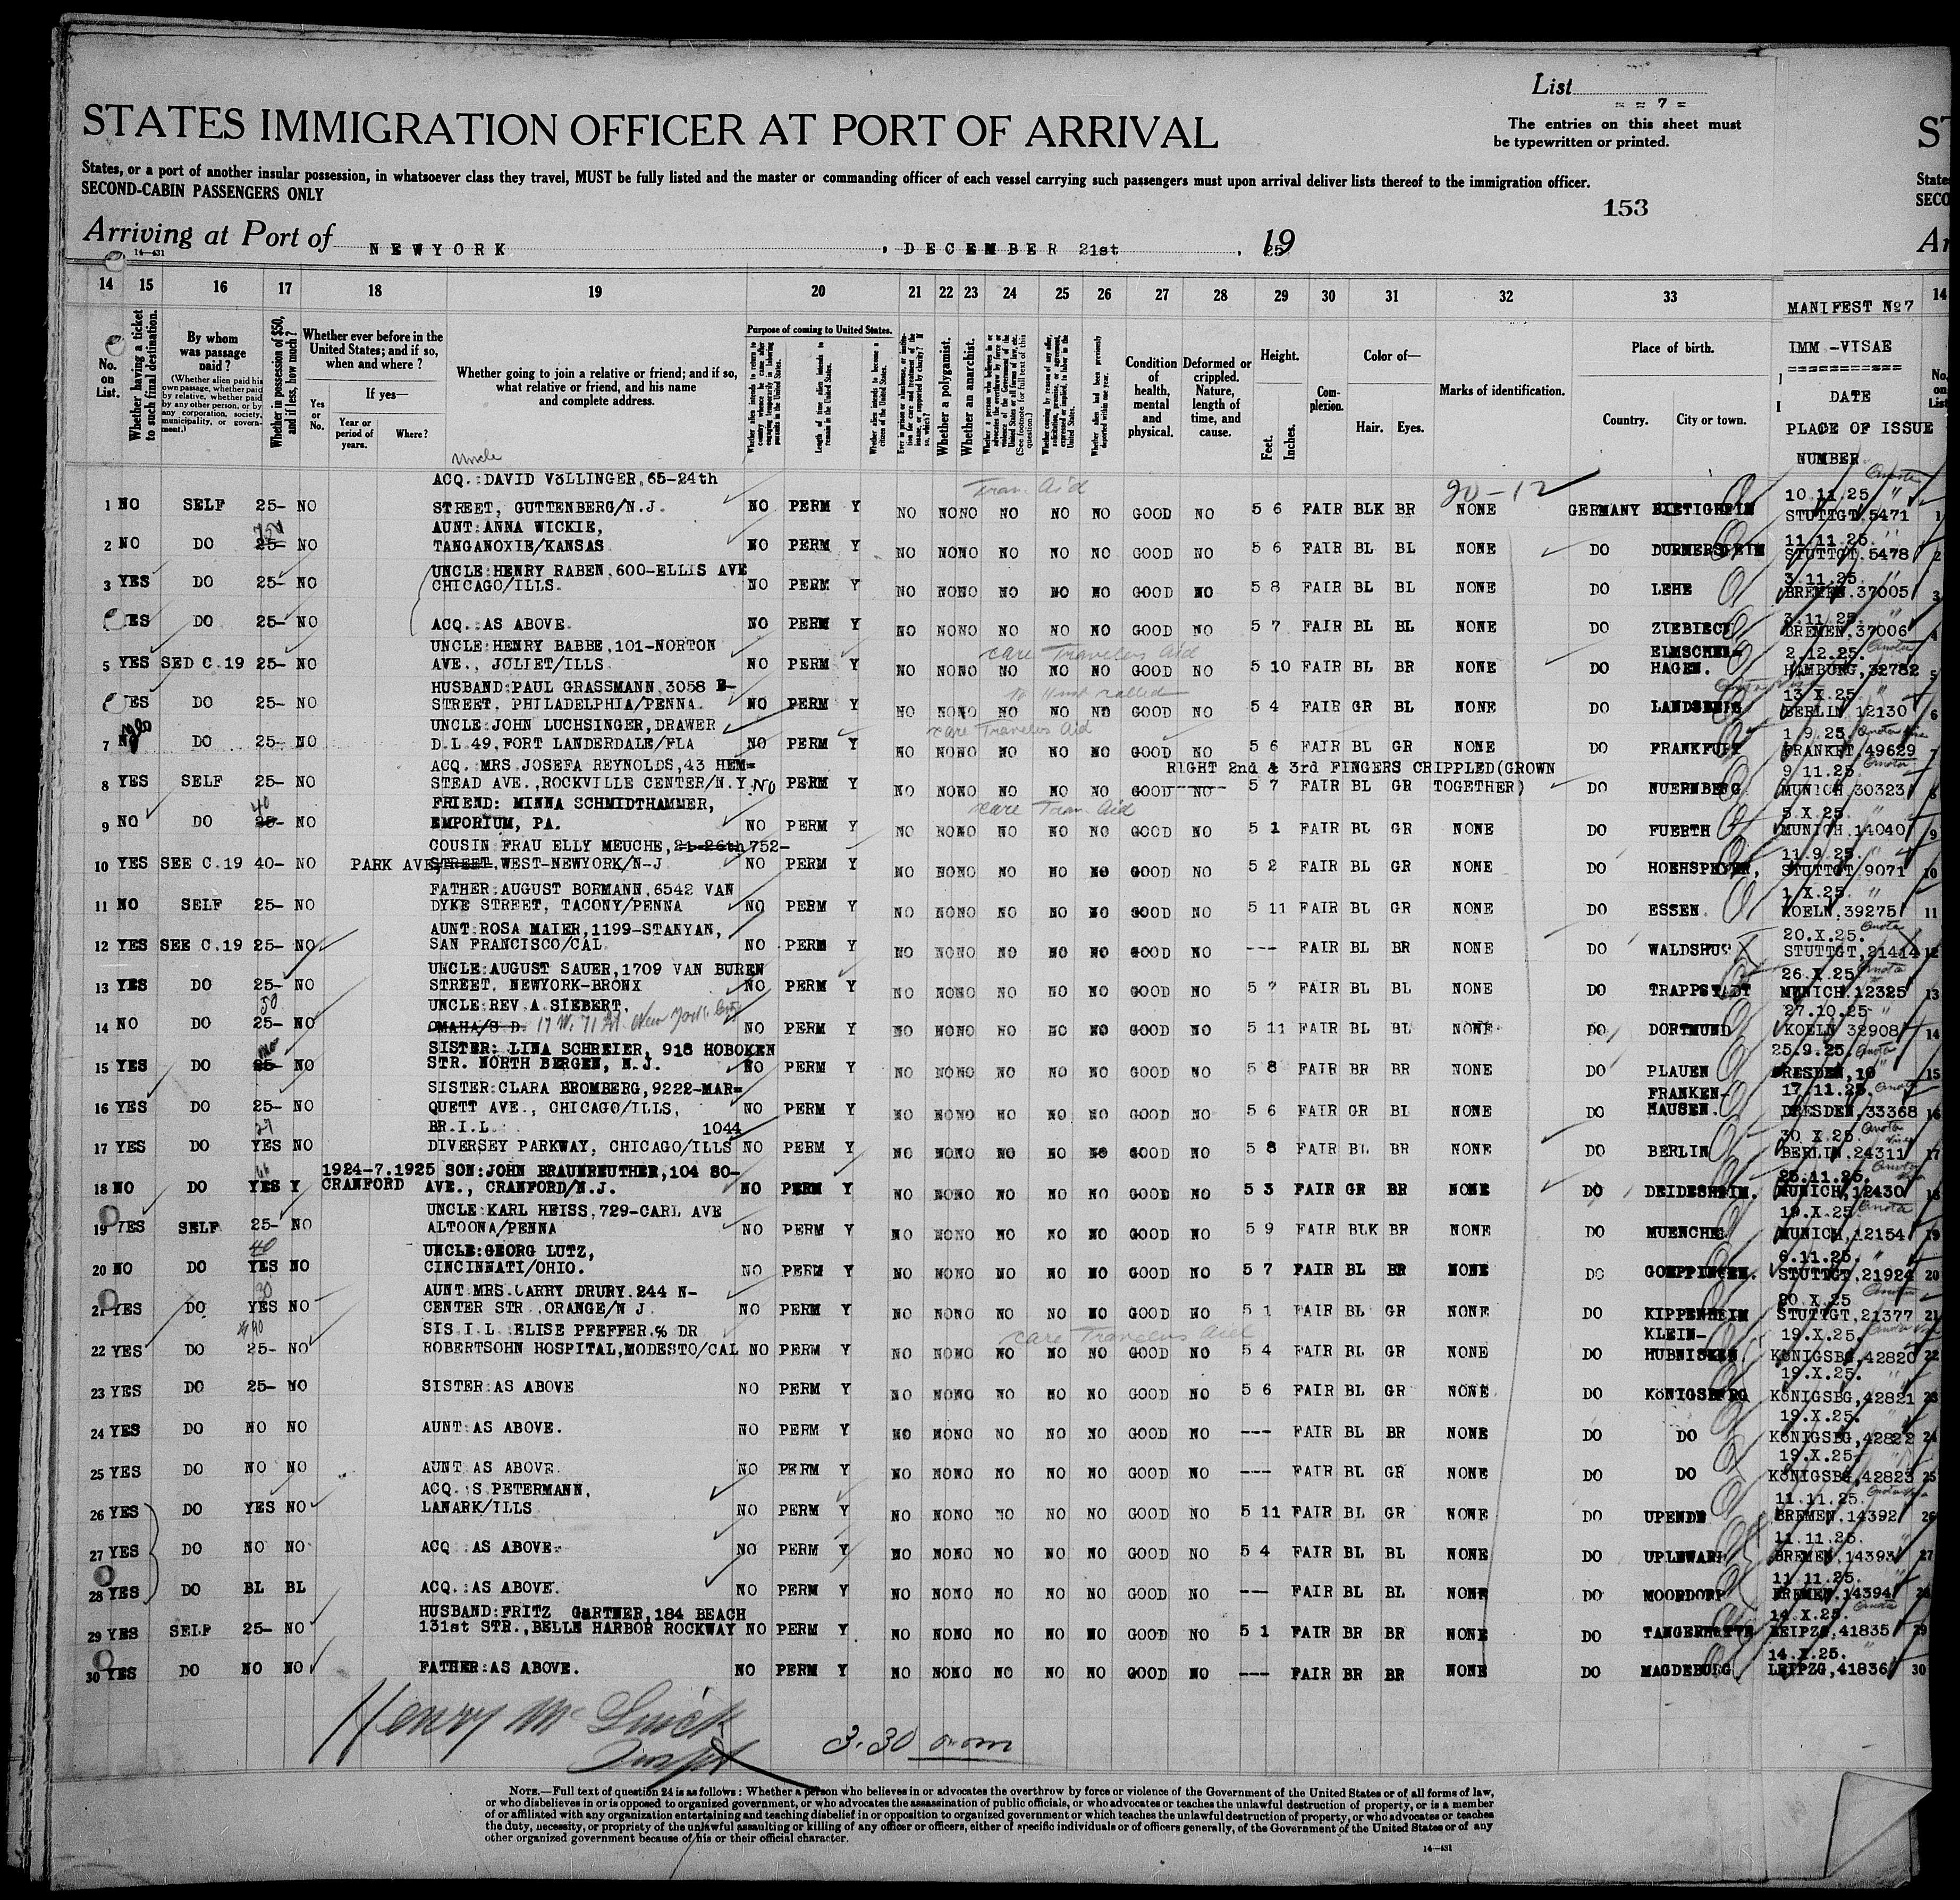 List
= = 7 =
STATES IMMIGRATION OFFICER AT PORT OF ARRIVAL
The entries on this sheet must
be typewritten or printed.
States, or a port of another insular possession, in whatsoever class they travel, MUST be fully listed and the master or commanding officer of each vessel carrying such passengers must upon arrival deliver lists thereof to the immigration officer.
SECOND-CABIN PASSENGERS ONLY
153
Arriving at Port of NEWYORK, DECEMBER 21st, 19 25
14—431
14 15 16 17 18 19 20 21 22 23 24 25 26 27 28 29 30 31 32 33
No. on List.
Whether having a ticket to such final destination.
By whom was passage paid?
(Whether alien paid his own passage, whether paid by relative, whether paid by any other person, or by any corporation, society, municipality, or government.)
Whether in possession of $50, and if less, how much?
Whether ever before in the United States; and if so, when and where?
If yes—
Yes or No.
Year or period of years.
Where?
Whether going to join a relative or friend; and if so, what relative or friend, and his name and complete address.
Purpose of coming to United States.
Length of time alien intends to remain in the United States.
Whether alien intends to become a citizen of the United States.
Whether a polygamist.
Whether an anarchist.
Condition of health, mental and physical.
Deformed or crippled. Nature, length of time, and cause.
Height.
Feet. Inches.
Complexion.
Color of—
Hair. Eyes.
Marks of identification.
Place of birth.
Country. City or town.
MANIFEST No 7
IMM -VISAE
DATE
PLACE OF ISSUE
NUMBER
Uncle
ACQ.:DAVID VöLLINGER,65-24th Tran. Aid 20-12 10.11.25
1 NO SELF 25- NO STREET, GUTTENBERG/N.J. NO PERM Y NO NO NO NO NO NO GOOD NO 5 6 FAIR BLK BR NONE GERMANY BIETIGHEIM STUTTGT,5471 1
AUNT:ANNA WICKIE, 11.11.25.
2 NO DO 25- NO TANGANOXIE/KANSAS NO PERM Y NO NO NO NO NO NO GOOD NO 5 6 FAIR BL BL NONE DO DURMERSHEIM STUTTGT,5478 2
UNCLE:HENRY RABEN,600-ELLIS AVE 3.11.25.
3 YES DO 25- NO CHICAGO/ILLS. NO PERM Y NO NO NO NO NO NO GOOD NO 5 8 FAIR BL BL NONE DO LEHE BREMEN,37005 3
3.11.25.
YES DO 25- NO ACQ.:AS ABOVE. NO PERM Y NO NO NO NO NO NO GOOD NO 5 7 FAIR BL BL NONE DO BREMEN,37006 4
UNCLE:HENRY BABBE,101-NORTON care Travelers Aid ELMSCHEN= 2.12.25.
5 YES SED C.19 25- NO AVE., JOLIET/ILLS NO PERM Y NO NO NO NO NO NO GOOD NO 5 10 FAIR BL BR NONE DO HAGEN. HAMBURG,32782 5
HUSBAND:PAUL GRASSMANN,3058 B- 13.X.25.
YES DO 25- NO STREET, PHILADELPHIA/PENNA. NO PERM Y NO NO NO NO NO NO GOOD NO 5 4 FAIR GR BL NONE DO LANDSBERG BERLIN 12130 6
UNCLE:JOHN LUCHSINGER,DRAWER care Travelers Aid 1.9.25.
7 DO 25- NO D.L.49,FORT LANDERDALE/FLA NO PERM Y NO NO NO NO NO NO GOOD NO 5 6 FAIR BL GR NONE DO FRANKFURT FRANKFT,49629 7
ACQ. MRS.JOSEFA REYNOLDS,43 HEM= RIGHT 2nd & 3rd FINGERS CRIPPLED(GROWN 9.11.25.
8 YES SELF 25- NO STEAD AVE.,ROCKVILLE CENTER/N.Y. NO PERM Y NO NO NO NO NO NO GOOD NO 5 7 FAIR BL GR TOGETHER) DO NUERNBERG MUNICH,30323 8
40 FRIEND: MINNA SCHMIDTHAMMER, care Tran. Aid 5.X.25.
9 NO DO 25- NO EMPORIUM, PA. NO PERM Y NO NO NO NO NO NO GOOD NO 5 1 FAIR BL GR NONE DO FUERTH MUNICH,14040 9
COUSIN FRAU ELLY MEUCHE,21-26th 752- 11.9.25.
10 YES SEE C.19 40- NO PARK AVE, STREET,WEST-NEWYORK/N-J NO PERM Y NO NO NO NO NO NO GOOD NO 5 2 FAIR BL GR NONE DO STUTTGT,9071 10
FATHER:AUGUST BORMANN,6542 VAN 1.X.25.
11 NO SELF 25- NO DYKE STREET, TACONY/PENNA NO PERM Y NO NO NO NO NO NO GOOD NO 5 11 FAIR BL GR NONE DO ESSEN KOELN,39275 11
AUNT:ROSA MAIER,1199-STANYAN, 20.X.25.
12 YES SEE C.19 25- NO SAN FRANCISCO/CAL. NO PERM Y NO NO NO NO NO NO GOOD NO --- FAIR BL BR NONE DO WALDSHUT STUTTGT,21414 12
UNCLE:AUGUST SAUER,1709 VAN BUREN 26.X.25.
13 YES DO 25- NO STREET, NEWYORK-BRONX NO PERM Y NO NO NO NO NO NO GOOD NO 5 7 FAIR BL BL NONE DO TRAPPSTADT MUNICH,12325 13
50 UNCLE:REV.A.SIEBERT, 27.10.25.
14 NO DO 25- NO OMAHA/S D. 17 W. 71 St. New York City NO PERM Y NO NO NO NO NO NO GOOD NO 5 11 FAIR BL BL NONE DO DORTMUND KOELN 32908 14
SISTER: LINA SCHREIER, 918 HOBOKEN 25.9.25.
15 YES DO 25- NO STR. NORTH BERGEN, N.J. NO PERM Y NO NO NO NO NO NO GOOD NO 5 8 FAIR BR BR NONE DO PLAUEN DRESDEN,10 15
SISTER:CLARA BROMBERG,9222-MAR= FRANKEN- 17.11.25.
16 YES DO 25- NO QUETT AVE., CHICAGO/ILLS, NO PERM Y NO NO NO NO NO NO GOOD NO 5 6 FAIR GR BL NONE DO HAUSEN. DRESDEN,33368 16
BR.I.L. 1044 30.X.25.
17 YES DO YES NO DIVERSEY PARKWAY, CHICAGO/ILLS NO PERM Y NO NO NO NO NO NO GOOD NO 5 8 FAIR BL BR NONE DO BERLIN BERLIN,24311 17
1924-7.1925 SON:JOHN BRAUNREUTHER,104 SO- 25.11.25.
18 NO DO YES Y CRANFORD AVE., CRANFORD/N.J. NO PERM Y NO NO NO NO NO NO GOOD NO 5 3 FAIR GR BR NONE DO DEIDESHEIM. MUNICH,12430 18
UNCLE:KARL HEISS,729-CARL AVE 19.X.25.
19 YES SELF 25- NO ALTOONA/PENNA NO PERM Y NO NO NO NO NO NO GOOD NO 5 9 FAIR BLK BR NONE DO MUENCHEN MUNICH,12154 19
40 UNCLE:GEORG LUTZ, 6.11.25.
20 NO DO YES NO CINCINNATI/OHIO. NO PERM Y NO NO NO NO NO NO GOOD NO 5 7 FAIR BL BR NONE DO GOEPPINGEN. STUTTGT,21924 20
30 AUNT MRS.CARRY DRURY,244 N- 20.X.25
21 YES DO YES NO CENTER STR.,ORANGE/N J. NO PERM Y NO NO NO NO NO NO GOOD NO 5 1 FAIR BL GR NONE DO KIPPENHEIM STUTTGT,21377 21
SIS.I.L.:ELISE PFEFFER,% DR care Travelers Aid KLEIN- 19.X.25.
22 YES DO 25- NO ROBERTSOHN HOSPITAL,MODESTO/CAL NO PERM Y NO NO NO NO NO NO GOOD NO 5 4 FAIR BL GR NONE DO KöNIGSBG,42820 22
19.X.25.
23 YES DO 25- NO SISTER:AS ABOVE NO PERM Y NO NO NO NO NO NO GOOD NO 5 6 FAIR BL GR NONE DO KöNIGSBERG KöNIGSBG,42821 23
19.X.25.
24 YES DO NO NO AUNT:AS ABOVE. NO PERM Y NO NO NO NO NO NO GOOD NO --- FAIR BL BR NONE DO DO KöNIGSBG,42822 24
19.X.25.
25 YES DO NO NO AUNT AS ABOVE. NO PERM Y NO NO NO NO NO NO GOOD NO --- FAIR BL GR NONE DO DO KöNIGSBG,42823 25
ACQ.:S PETERMANN, 11.11.25.
26 YES DO YES NO LANARK/ILLS NO PERM Y NO NO NO NO NO NO GOOD NO 5 11 FAIR BL GR NONE DO UPENDE BREMEN,14392 26
11.11.25.
27 YES DO NO NO ACQ.:AS ABOVE. NO PERM Y NO NO NO NO NO NO GOOD NO 5 4 FAIR BL BL NONE DO UPLEWARD BREMEN,14393 27
11.11.25.
28 YES DO BL BL ACQ.:AS ABOVE. NO PERM Y NO NO NO NO NO NO GOOD NO --- FAIR BL BL NONE DO MOORDORF BREMEN,14394 28
HUSBAND:FRITZ GÄRTNER,184 BEACH 14.X.25.
29 YES SELF 25- NO 131st STR.,BELLE HARBOR ROCKWAY NO PERM Y NO NO NO NO NO NO GOOD NO 5 1 FAIR BR BR NONE DO TANGERHÜTTE LEIPZG,41835 29
14.X.25.
30 YES DO NO NO FATHER:AS ABOVE. NO PERM Y NO NO NO NO NO NO GOOD NO --- FAIR BR BR NONE DO MAGDEBURG LEIPZG,41836 30
Henry
3.30
NOTE.—Full text of question 24 is as follows: Whether a person who believes in or advocates the overthrow by force or violence of the Government of the United States or of all forms of law,
or who disbelieves in or is opposed to organized government, or who advocates the assassination of public officials, or who advocates or teaches the unlawful destruction of property, or is a member
of or affiliated with any organization entertaining and teaching disbelief in or opposition to organized government or which teaches the unlawful destruction of property, or who advocates or teaches
the duty, necessity, or propriety of the unlawful assaulting or killing of any officer or officers, either of specific individuals or of officers generally, of the Government of the United States or of any
other organized government because of his or their official character.
14—431